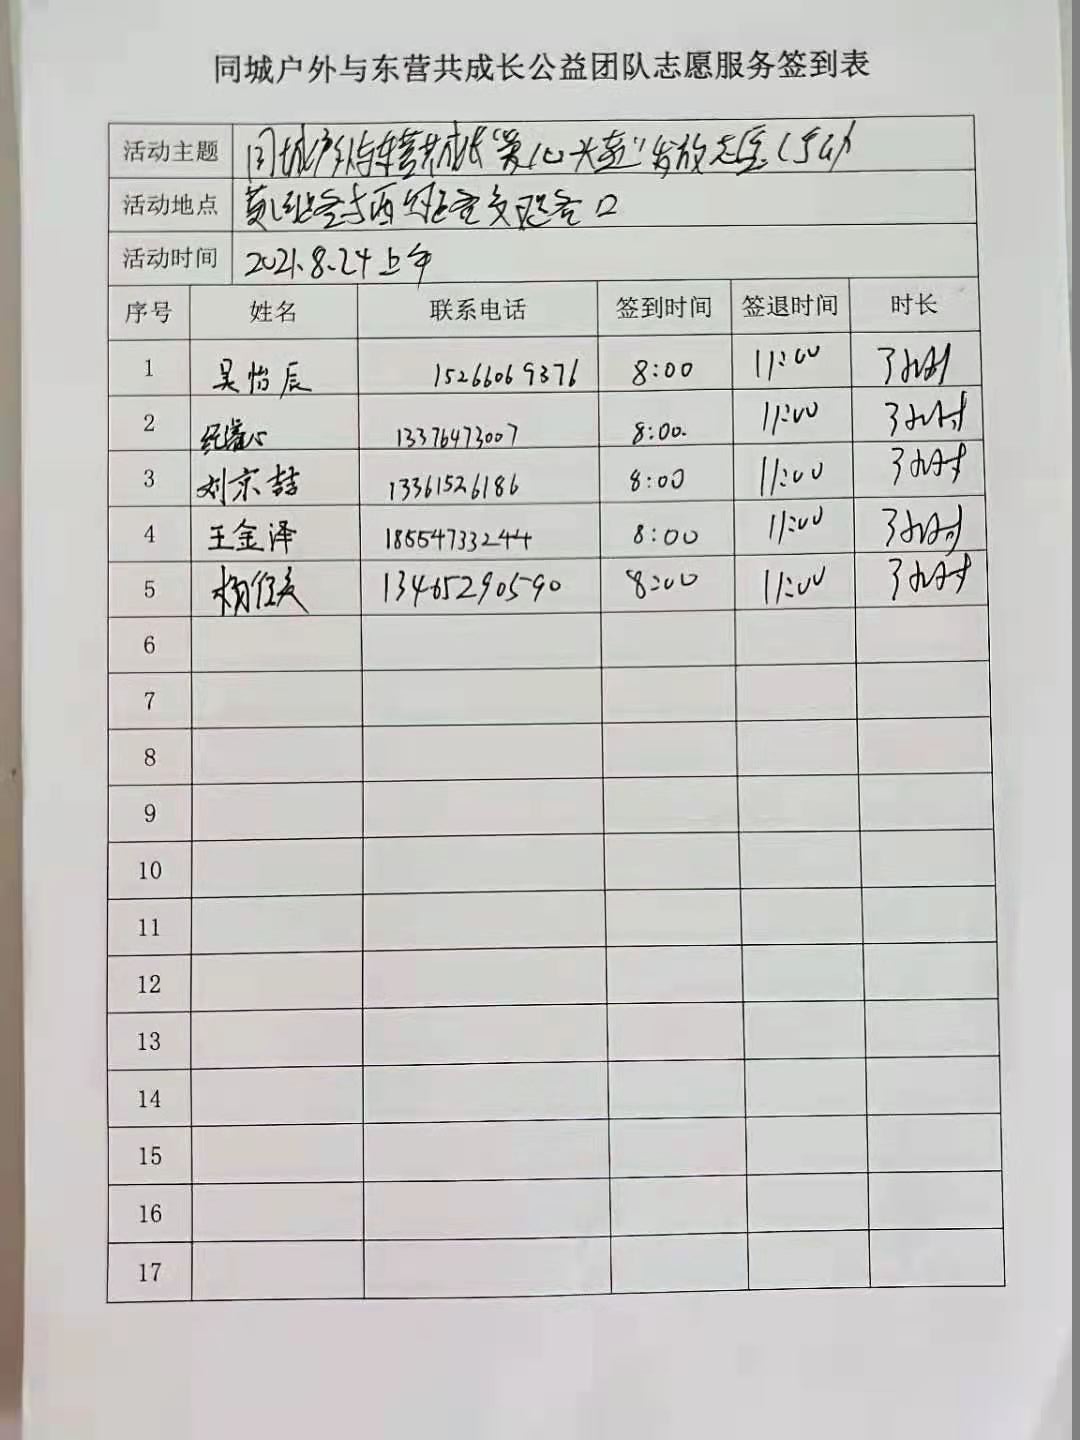 同城户外与东营共成长公益团队志愿服务签到表
活动主题 同城户外与东营共成长“爱心头盔”发放志愿活动
活动地点 黄河路与西四路交叉路口
活动时间 2021.8.24上午
序号 姓名 联系电话 签到时间 签退时间 时长
1 吴怡辰 15266069376 8:00 11:00 3小时
2 13376473007 8:00. 11:00 3小时
3 刘京喆 13361526186 8:00 11:00 3小时
4 王金泽 18554733244 8:00 11:00 3小时
5 13465290590 8:00 11:00 3小时
6
7
8
9
10
11
12
13
14
15
16
17